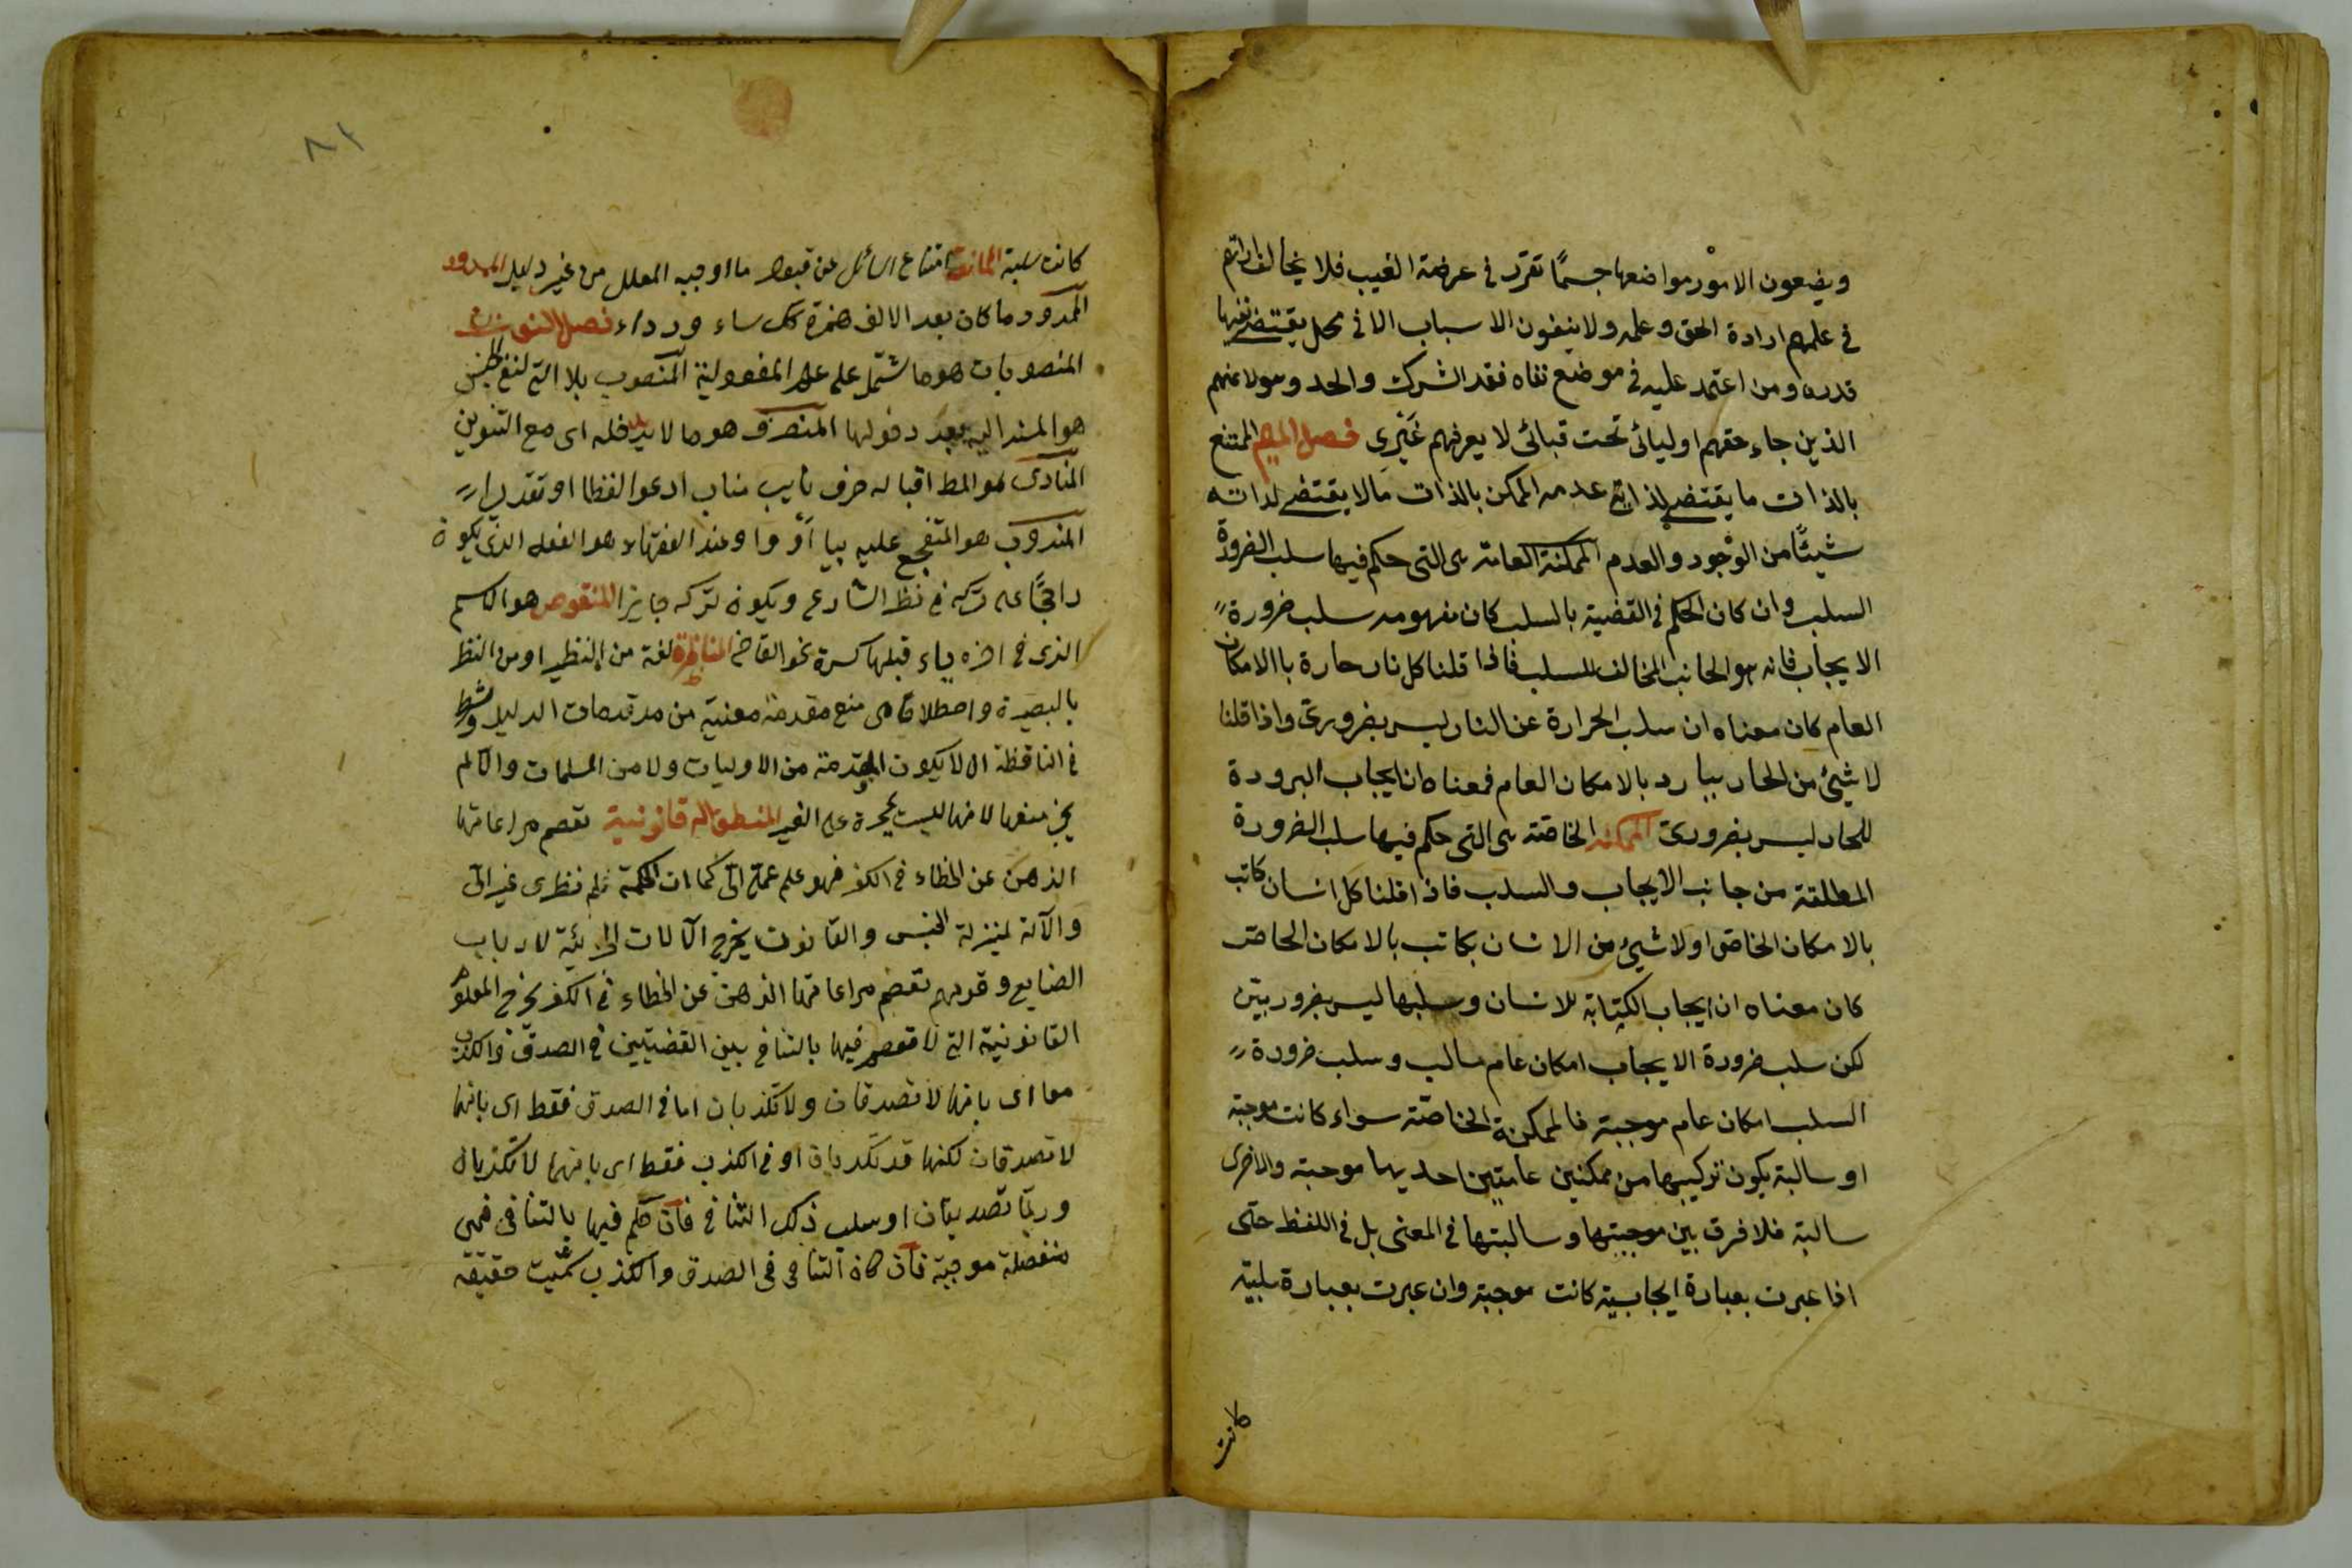 ويضعون الامور مواضعها حسمًا تقرر في عرضة الغيب فلا يخالف ارادتهم
في علمهم ارادة الحق وعلمه ولا ينفون الاسباب الا في محل يقتضي نفيها
قدره ومن اعتمد عليه في موضع نفاه فقد اشرك والحد وهولاء هم
الذين جاء حقهم اوليائي تحت قبائي لا يعرفهم غَيْري فصل الميم الممتنع
بالذات ما يقتضي لذاته عدمه الممكن بالذات مالا يقتضي لذاته
شيئًا من الوجود والعدم الممكنة العامة هى التى حكم فيها سلب الضرورة
السلب وان كان الحكم في القضية بالسلب كان مفهومه سلب ضرورة
الايجاب فانه هو الجانب المخالف للسلب فاذا قلنا كل نار حارة باالامكان
العام كان معناه ان سلب الحرارة عن النار ليس بضرورىّ واذا قلنا
لا شيئ من الحار ببارد بالامكان العام فمعناه ان ايجاب البرودة
للحار ليس بضرورىّ الممكنه الخاصّة هى التى حكم فيها سلب الضرورة
المطلقة من جانب الايجاب والسلب فاذا قلنا كل انسان كاتب
بالامكان الخاص او لا شيئ من الانسان بكاتب بالامكان الخاص
كان معناه ان ايجاب الكتابة للانسان وسلبها ليس بضروريتين
لكن سلب ضرورة الايجاب امكان عام سالب وسلب ضرورة
السلب امكان عام موجبة فالممكنة الخاصّة سواء كانت موجبة
او سالبة يكون تركيبها من ممكنتين عامتين احديها موجبة والاخرى
سالبة فلا فرق بين موجبتها وسالبتها في المعنى بل في اللفظ حتى
اذا عبرت بعبارة ايجابية كانت موجبة وان عبرت بعبارة سلبيّة
كانت
٨٢
كانت سلبية الممانعة امتناع السائل عن قبول ما اوجبه المعلل من غير دليل الممدود
الممدود ما كان بعد الالف همزة ككساء ورداء فصل النون
المنصوبات هو ما اشتمل على علم المفعولية المنصوب بلا التي لنفي الجنس
هو المسند اليه بعد دخولها المنصرف هو ما لا يدخله اى مع التنوين
المنادى هو المط اقباله حرف نايب مناب ادعو الفظا او تقديرا
المندوب هو المتفجع عليه بيا اَوْ وا وعند الفقهاء هو الفعل الذي يكون
راجحًا على تركه في نظر الشارع ويكون تركه جايزا المنقوص هو الاسم
الذى في اخره ياء قبلها كسرة نحو القاضي المناظرة لغة من النظير او من النظر
بالبصيرة واصطلاحا هى منع مقدمة معنية من مدقدمات الدليل وشرط
في المناقظة ان لا يكون المقدمة من الاوليات ولا من المسلمات والا لم
يجز منعها لانها ليست بحجة على الغير المنطق الة قانونية تعصم مراعاتها
الذهن عن الخطاء في الفكر فهو علم عملى الىّ كما ان الحكمة علم نظرى غير الىّ
والآلة بمنزلة الجنس والقانون يخرج الآلات الجزئية لارباب
الصنايع وقولهم تعصم مراعاتها الذهن عن الخطاء في الفكر يخرج العلوم
القانونية التي لا تعصم فيها بالتنافي بين القضيتين في الصدق والكذب
معا اى بانها لا تصدقان ولا تكذبان اما في الصدق فقط اى بانها
لا تصدقان لكنها قد تكذبان او في الكذب فقط اى بانهما لا تكذبان
وربّما تصدقان او سلب ذلك التنافي فان حكم فيها بالتنافى فهى
منفصلة موجبة فان كان التنافى فى الصدق والكذب سميت حقيقة